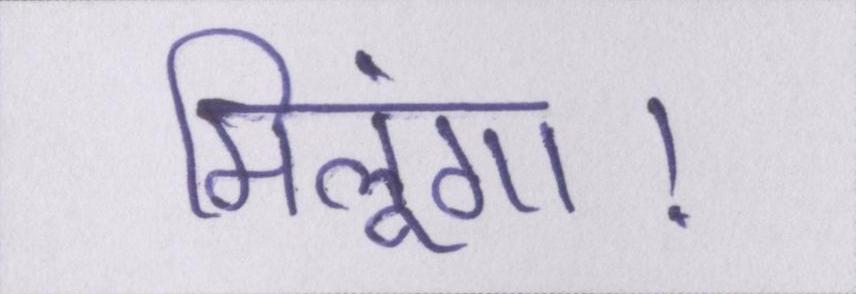 मिलूंगा!